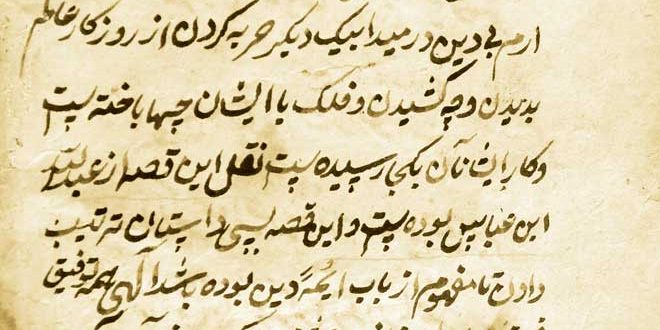 ارم بی دین در میدا بیک دیکر حربه کردن از روزکار
بدیدن وچه کشیدن و فلک با ایشان چها باخته ست
وکار ایشان بکجا رسیده ست نقل این قصه از عبدالله
ابن عباس بوده ست و این قصه سی داستان ترتیب
دادن تا مفهوم از باب ائمهٔ دین بوده باشد آلهی همه توفیق